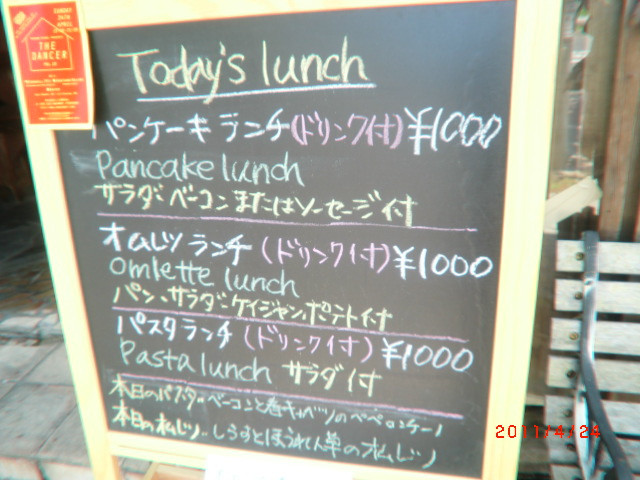 SUNDAY
24TH
APRIL
THE
DANCER
Today's lunch
パンケーキランチ(ドリンク付)¥1000
Pancake lunch
サラダ・ベーコンまたはソーセージ付
オムレツランチ(ドリンク付)¥1000
omlette lunch
パン、サラダ、ケイジャンポテト付
パスタランチ(ドリンク付)¥1000
Pasta lunch サラダ付
本日のパスタ..ベーコンと春キャベツのペペロンチーノ
本日のオムレツ..しらすとほうれん草のオムレツ
2011/4/24